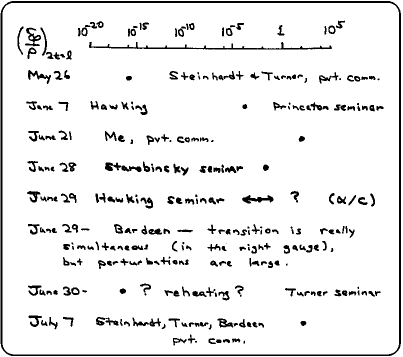 (δρ/ρ)₂ₜ₌ℓ 10⁻²⁰ 10⁻¹⁵ 10⁻¹⁰ 10⁻⁵ 1 10⁵
May 26 • Steinhardt & Turner, pvt. comm.
June 7 Hawking • Princeton seminar
June 21 Me, pvt. comm. •
June 28 Starobinsky seminar •
June 29 Hawking seminar ↔ ? (α/c)
June 29- Bardeen — transition is really
simultaneous (in the right gauge),
but perturbations are large.
June 30- • ? reheating? Turner seminar
July 7 Steinhardt, Turner, Bardeen •
pvt. comm.